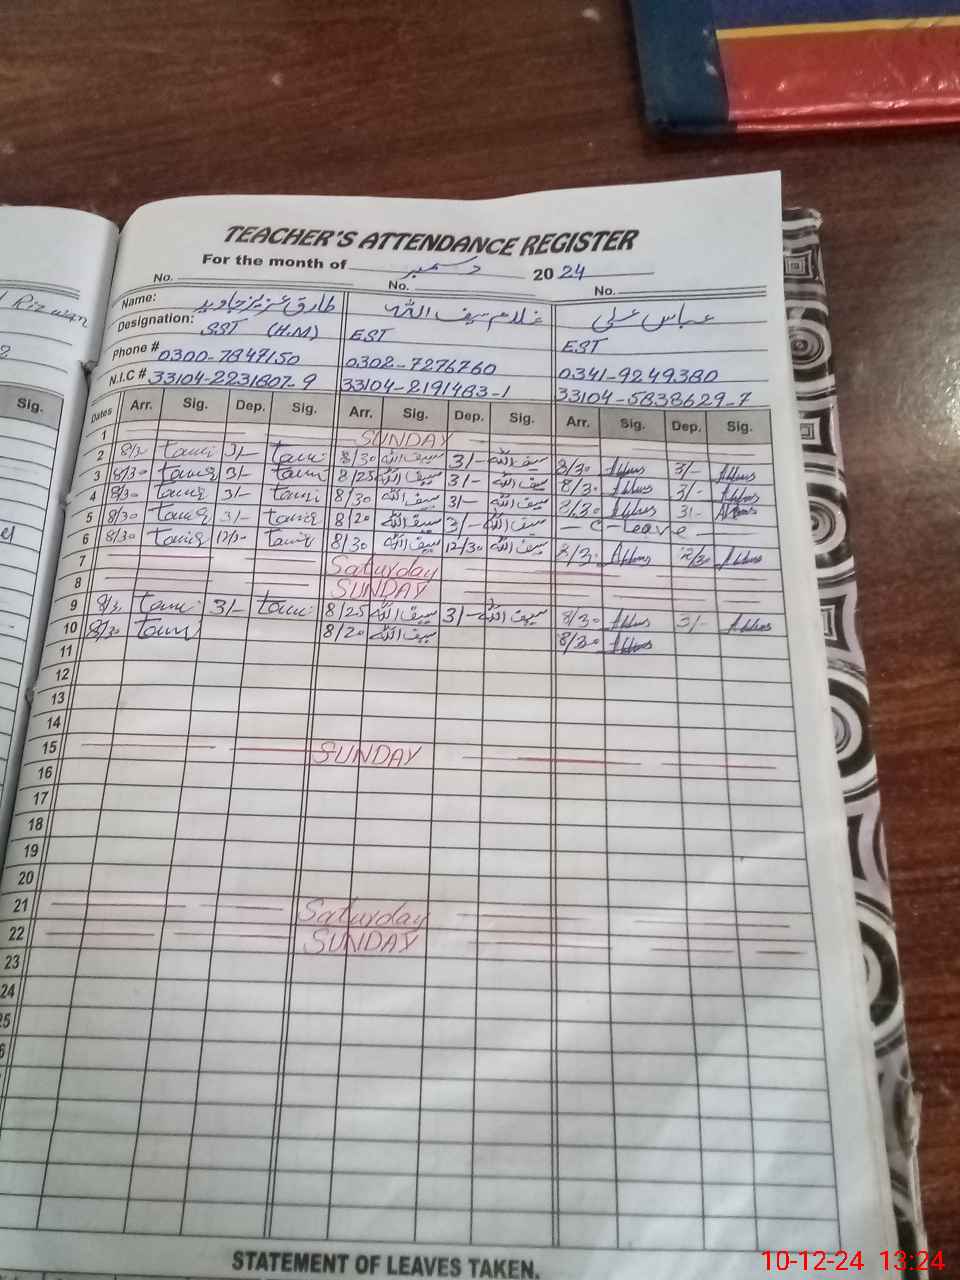 Rizwan
TEACHER'S ATTENDANCE REGISTER
For the month of دسمبر 2024
No. No. No.
Name: طارق عزیز جاوید غلام سیف اللہ عباس علی
Designation: SST (H.M) EST EST
Phone # 0300-7847150 0302-7276760 0341-9249380
N.I.C # 33104-2231807-9 33104-2191483-1 33104-5838629-7
Sig. Dates Arr. Sig. Dep. Sig. Arr. Sig. Dep. Sig. Arr. Sig. Dep. Sig.
1 SUNDAY
2 8/30 3/- 8/30 سیف اللہ 3/- سیف اللہ 8/30 Abbas 3/- Abbas
3 8/30 3/- 8/25 سیف اللہ 3/- سیف اللہ 8/30 Abbas 3/- Abbas
4 8/30 3/- 8/30 سیف اللہ 3/- سیف اللہ 8/30 Abbas 3/- Abbas
5 8/30 3/- 8/20 سیف اللہ 3/- سیف اللہ C-Leave
6 8/30 12/30 8/30 سیف اللہ 12/30 سیف اللہ 8/30 Abbas 12/30 Abbas
7 Saturday
8 SUNDAY
9 8/30 3/- 8/25 سیف اللہ 3/- سیف اللہ 8/30 Abbas 3/- Abbas
10 8/30 8/20 سیف اللہ 8/30 Abbas
11
12
13
14
15 SUNDAY
16
17
18
19
20
21 Saturday
22 SUNDAY
23
24
STATEMENT OF LEAVES TAKEN.
10-12-24 13:24